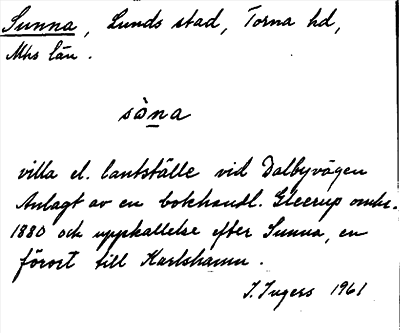 Sunna, Lunds stad, Torna hd,
Mhs län.
söna
villa el. lantställe vid Dalbyvägen
Anlagt av en bokhandl. Gleerup omkr.
1880 och uppkallelse efter Sunna, en
förort till Karlshamn.
I. Ingers 1961